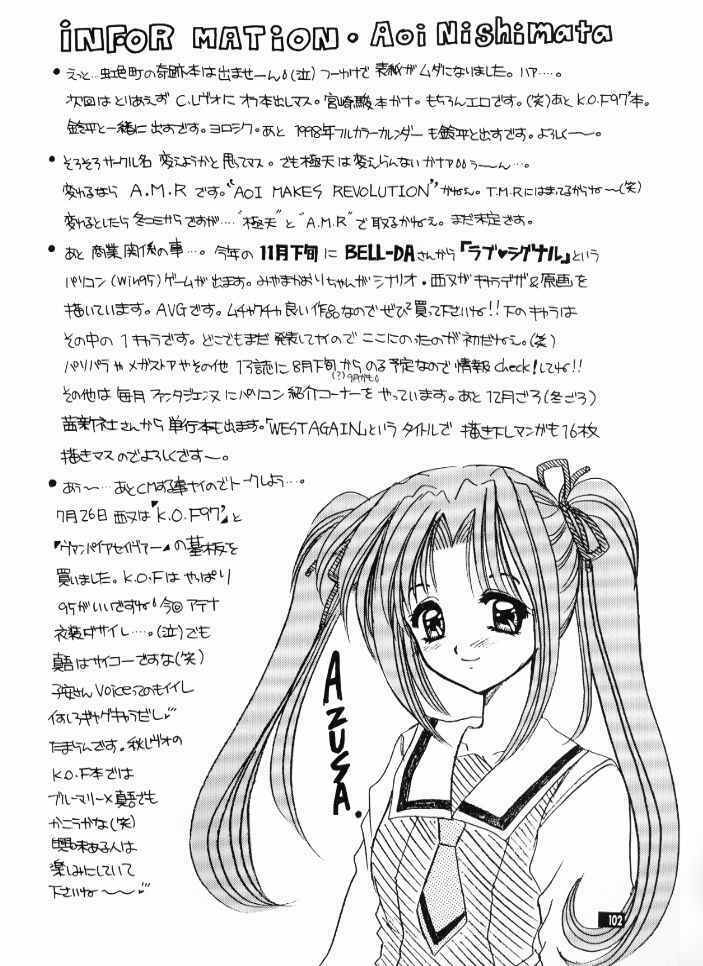 INFORMATION・Aoi Nishimata
・えっと…虹色町の奇跡本は出ませーん!(泣)つーわけで表紙がムダになりました。ハァ…。
次回はとりあえずC.レヴォにオフ本出しマス。宮崎駿本かナ。もちろんエロです。(笑)あとK.O.F97'本。
鈴平と一緒に出すです。ヨロシク。あと1998年フルカラーカレンダーも鈴平と出すです。よろしく〜。
・そろそろサークル名変えようかと思ってマス。でも極天は変えらんないかナァ うーん…。
変わるならA.M.Rです。"AOI MAKES REVOLUTION"かねぇ。T.M.Rにはまってるからね〜(笑)
変わるとしたら冬コミからですが…"極天"と"A.M.R"で取るかねぇ。まだ未定です。
・あと商業関係の事…。今年の11月下旬にBELL-DAさんから「ラブ♥シグナル」という
パソコン(Win95)ゲームが出ます。みやまかおりちゃんがシナリオ・西又がキャラデザ&原画を
描いています。AVGです。ムチャクチャ良い作品なのでぜひ買って下さいね!!下のキャラは
その中の1キャラです。どこでもまだ発表してナイのでここにのったのが初だねぇ。(笑)
パソパラやメガストアやその他13誌に8月下旬からのる予定なので情報check!してね!!
(?)9月かも
その他は毎月ファンタジェンヌにパソコン紹介コーナーをやっています。あと12月ごろ(冬ごろ)
茜新社さんから単行本も出ます。「WEST AGAIN」というタイトルで描き下しマンガも16枚
描きマスのでよろしくです〜。
・あぅ〜…あとCMする事ナイのでトークしよう…。
7月26日西又は「K.O.F97'」と
「ヴァンパイアセイヴァー」の基板を
買いました。K.O.Fはやっぱり
95がいいですね!今回アテナ
衣装ダサイし…。(泣)でも
真吾はサイコーですな(笑)
子安さんVoiceってのもイイし
何しろギャグキャラだし
たまらんです。秋レヴォの
K.O.F本では
ブルーマリー×真吾でも
かこうかな(笑)
興味ある人は
楽しみにしていて
下さいね〜
AZUSA.
102